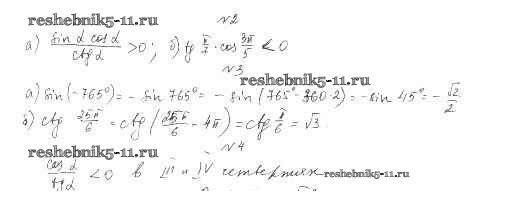 reshebnik5-11.ru
№2
а) sin α cos α / ctg α > 0; б) tg π/7 · cos 3π/5 < 0
№3
reshebnik5-11.ru
а) sin(-765°) = - sin 765° = - sin(765° - 360·2) = - sin 45° = - √2/2
б) ctg 25π/6 = ctg(25π/6 - 4π) = ctg π/6 = √3.
reshebnik5-11.ru
№4
cos α / tg α < 0 в III и IV четвертях
reshebnik5-11.ru